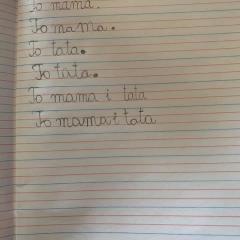 To mama.
To mama.
To tata.
To tata.
To mama i tata
To mama i tata